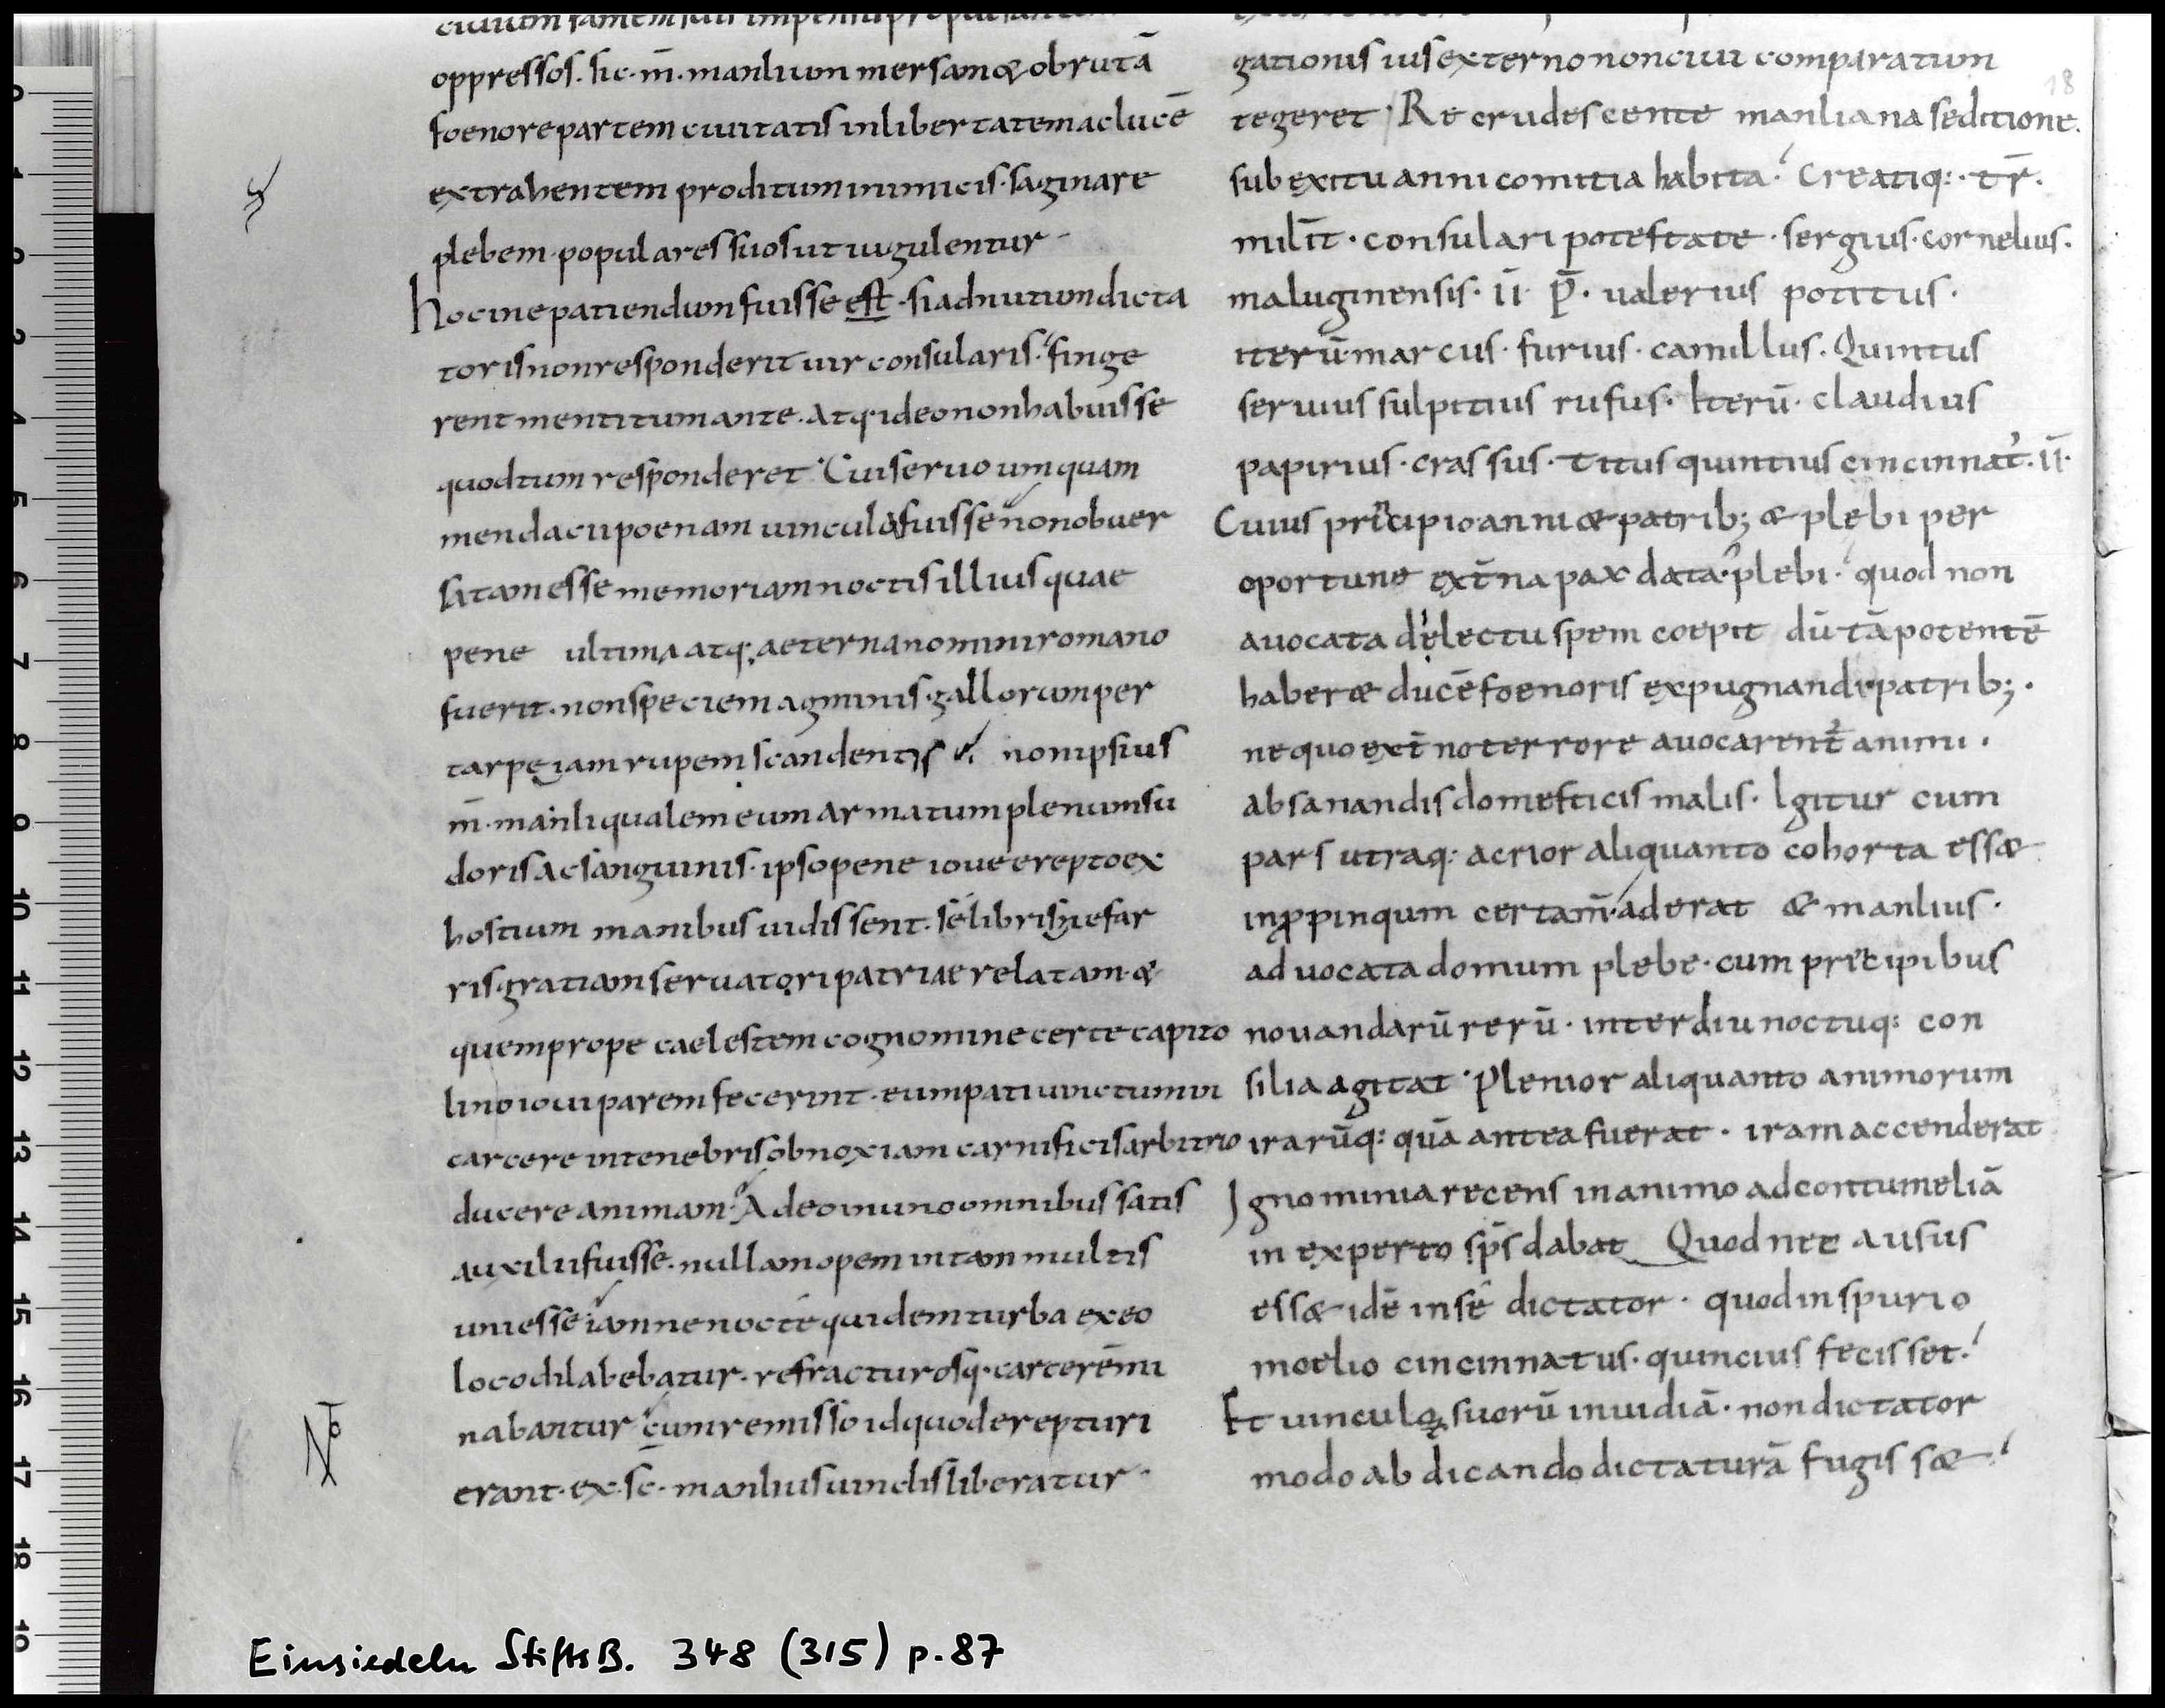 oppressos. sic. m̄. manlium mersam & obrutā
foenore partem ciuitatis in libertatem ac lucē
extrahentem proditum inimicis. saginare
plebem. populares suos ut iugulentur
hocine patiendum fuisse est. si ad nutum dicta
toris non responderit uir consularis. finge
rent mentitum ante. atq; ideo non habuisse
quod tum responderet. Cui seruo umquam
mendacii poenam uincula fuisse non obuer
satam esse memoriam noctis illius quae
pene ultima atq; aeterna nomini romano
fuerit. non speciem agminis. gallorum per
tarpeiam rupem scandentis non ipsius
m̄. manli qualem eum armatum plenum su
doris ac sanguinis. ipso pene ioue erepto ex
hostium manibus uidissent. selibrisne far
ris gratiam seruatori patriae relatam. &
quem prope caelestem cognomine certe capito
lino ioui parem fecerint. eum pati uinctum in
carcere in tenebris obnoxiam carnificis arbitrio
ducere animam. Adeo in uno omnibus satis
auxilii fuisse. nullam opem in tam multis
uni esse iam ne nocte quidem turba ex eo
loco dilabebatur. refracturosq; carcerē mi
nabantur cum remisso id quod erepturi
erant. ex. sc̄. manlius uinclis liberatur
gationis ius externo non ciui comparatum
tegeret Recrudescente manliana seditione.
sub exitu anni comitia habita. Creatiq:. tr̄.
milit̄. consulari potestate. sergius. cornelius.
maluginensis. īī P̄. ualerius potitus.
iterū marcus. furius. camillus. Quintus
seruius sulpitius rufus. Iterū. claudius
papirius. crassus. titus quintius cincinnat'. īī.
Cuius pricipio anni & patrib; & plebi per
oportune ext̄na pax data. plebi. quod non
auocata delectu spem coepit dū tā potentē
haber& ducē foenoris expugnandi patrib;.
ne quo ext̄no terrore auocarent̄ animi.
ab sanandis domesticis malis. Igitur cum
pars utraq: acrior aliquanto cohorta ess&
in ꝓpinqum certam̄ aderat & manlius.
aduocata domum plebe. cum pricipibus
nouandarū rerū. interdiu noctuq: con
silia agitat. Plenior aliquanto animorum
irarūq: quā antea fuerat. iram accenderat
Ignominia recens in animo ad contumeliā
in experto sp̄s dabat Quod nec ausus
ess& idē in sē dictator. quod in spurio
moelio cincinnatus. quincius fecisset.
Et uinculoꝝ suorū inuidiā. non dictator
modo abdicando dictaturā fugiss&
18
Einsiedeln StiftsB. 348 (315) p. 87
0
1
2
3
4
5
6
7
8
9
10
11
12
13
14
15
16
17
18
19